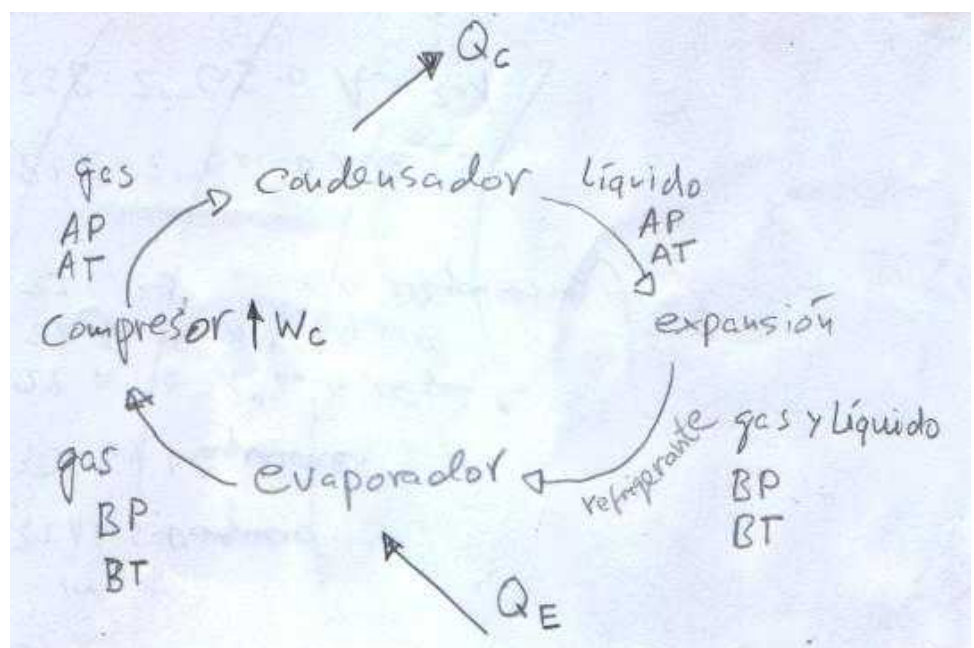 Qc
gas
AP
AT
Condensador
líquido
AP
AT
Compresor ↑ Wc
expansión
refrigerante
gas y líquido
BP
BT
evaporador
gas
BP
BT
QE